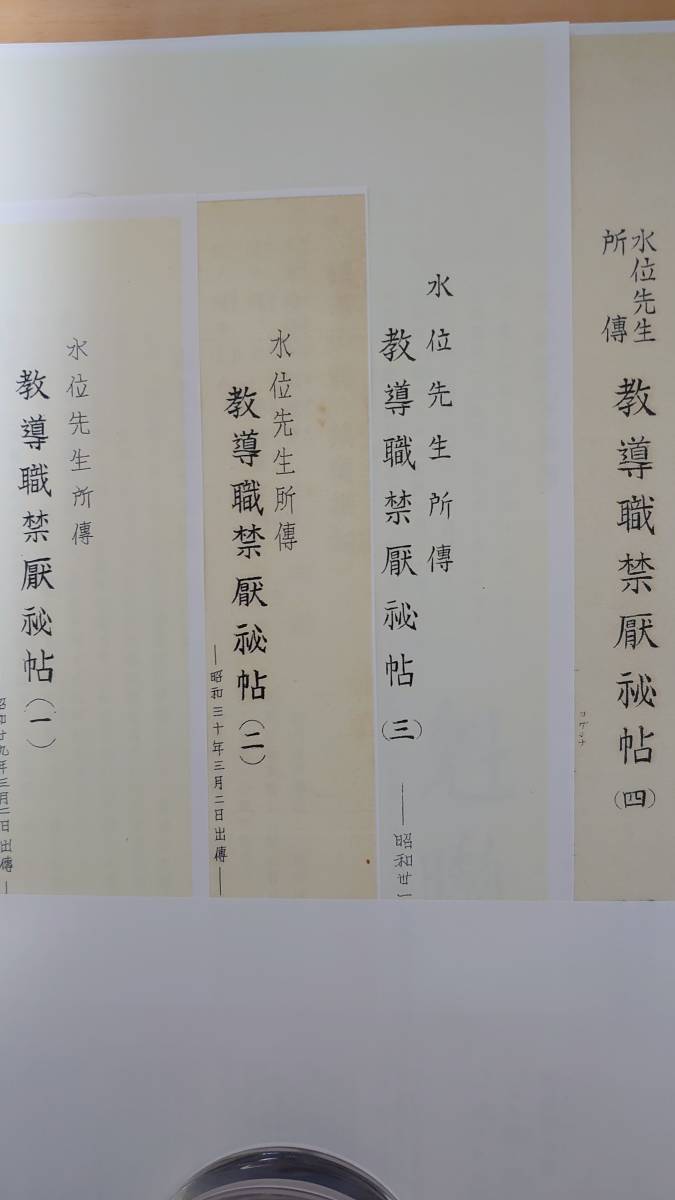 水位先生
所傳
教導職禁厭祕帖(四)
水位先生所傳
教導職禁厭祕帖(三)
——昭和廿一
水位先生所傳
教導職禁厭祕帖(二)
——昭和三十年三月二日出傳——
水位先生所傳
教導職禁厭祕帖(一)
昭和廿九年三月二日出傳——